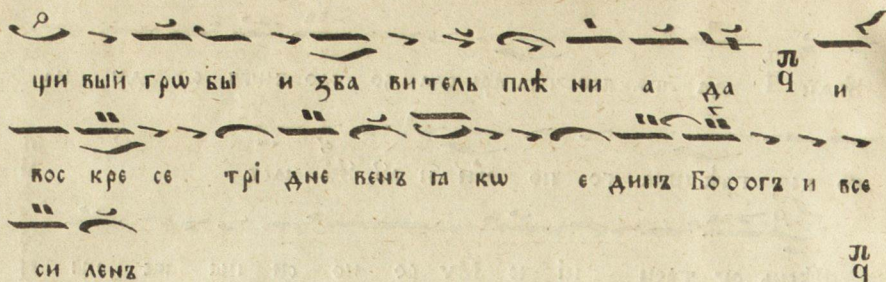 щи вый грѡ бы и зба ви тель плѣ ни а да и
вос кре се трі дне венъ ꙗ кѡ е динъ Бо о огъ и все
си ленъ